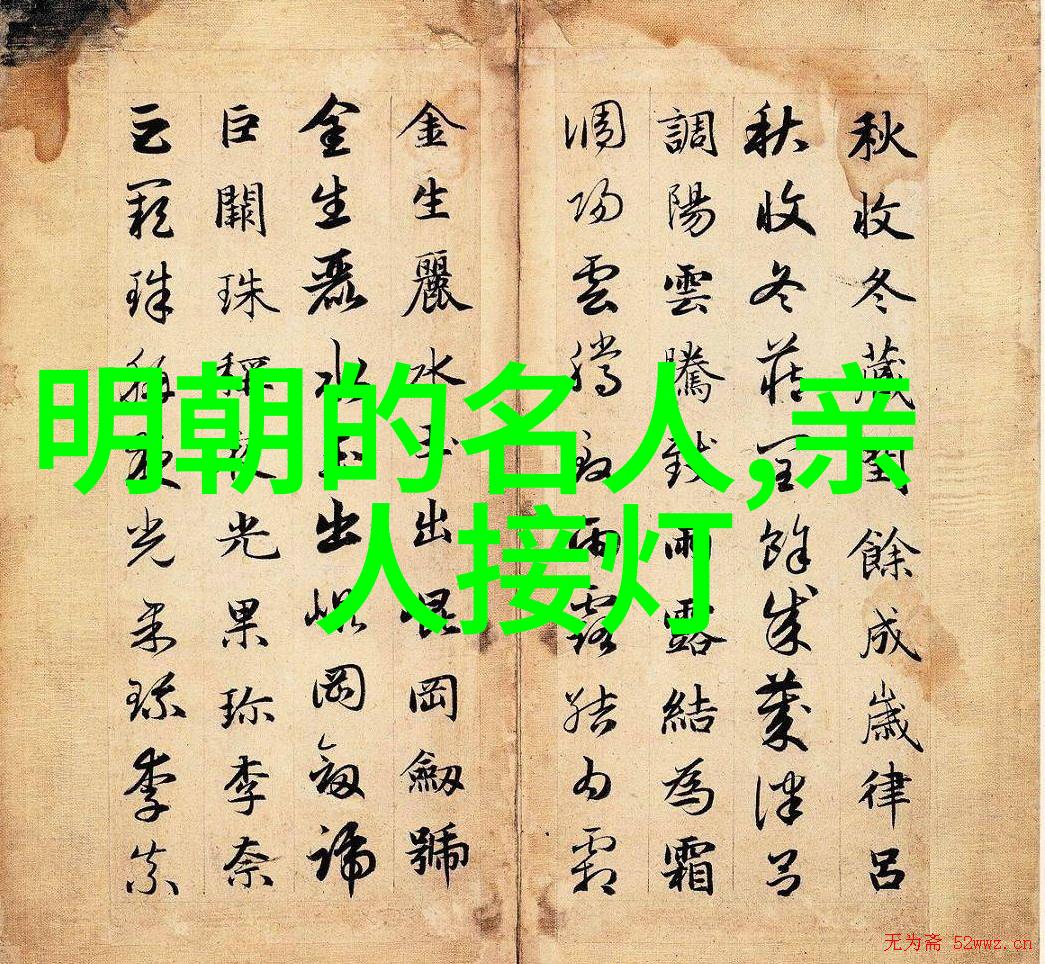 明朝的名人,亲
人接灯
秋收冬藏閏餘成歲律呂
秋收冬藏閏餘成歲律呂
調陽雲騰致雨露結為霜
調陽雲騰致雨露結为霜
金生麗水玉出崑岡劔號
金生麗水玉出崑岡劔號
巨闕珠稱夜光果珍李柰
巨闕珠稱夜光果珍李柰
无为斋 52wwz.cn